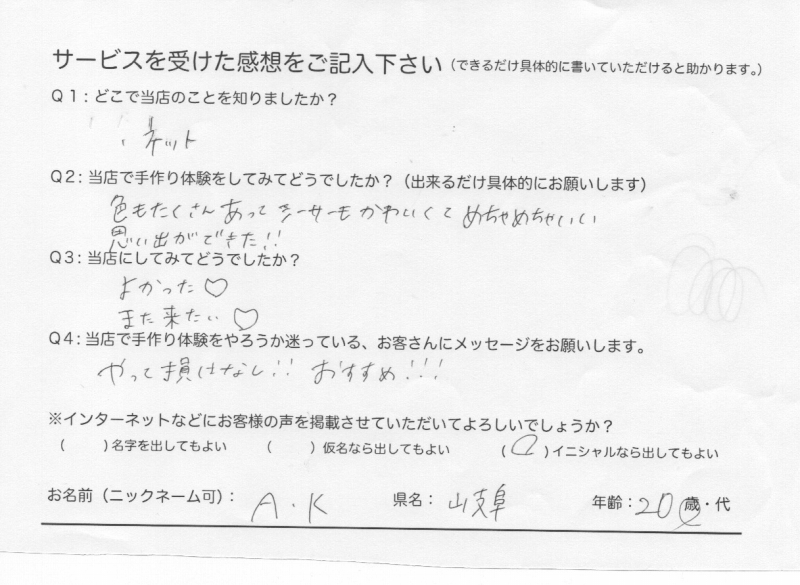 サービスを受けた感想をご記入下さい（できるだけ具体的に書いていただけると助かります。）
Q1：どこで当店のことを知りましたか？
ネット
Q2：当店で手作り体験をしてみてどうでしたか？（出来るだけ具体的にお願いします）
色もたくさんあってシーサーもかわいくてめちゃめちゃいい
思い出ができた!!
Q3：当店にしてみてどうでしたか？
よかった♡
また来たい♡
Q4：当店で手作り体験をやろうか迷っている、お客さんにメッセージをお願いします。
やって損はなし!! おすすめ!!!
※インターネットなどにお客様の声を掲載させていただいてよろしいでしょうか？
（　）名字を出してもよい　（　）仮名なら出してもよい　（○）イニシャルなら出してもよい
お名前（ニックネーム可）：A.K　県名：岐阜　年齢：20歳・代